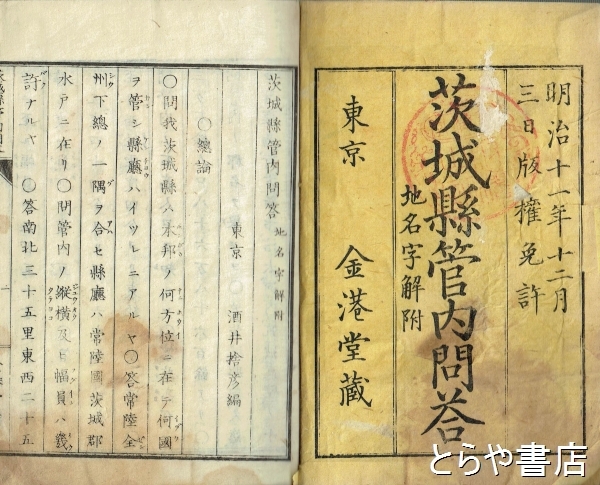 明治十一年十二月
三日版權免許
茨城縣管内問答
地名字解附
東京 金港堂藏
茨城縣管内問答 地名字解附
東京 酒井捨彦編
○總論
○問我茨城縣ハ本邦ノ何方位ニ在テ何國
ヲ管シ縣廳ハイツレニアルヤ○答常陸全
州下總ノ一隅ヲ合セ縣廳ハ常陸國茨城郡
水戸ニ在リ○問管内ノ縱横及ヒ幅員ハ幾
許ナルヤ○答南北三十五里東西二十五
とらや書店